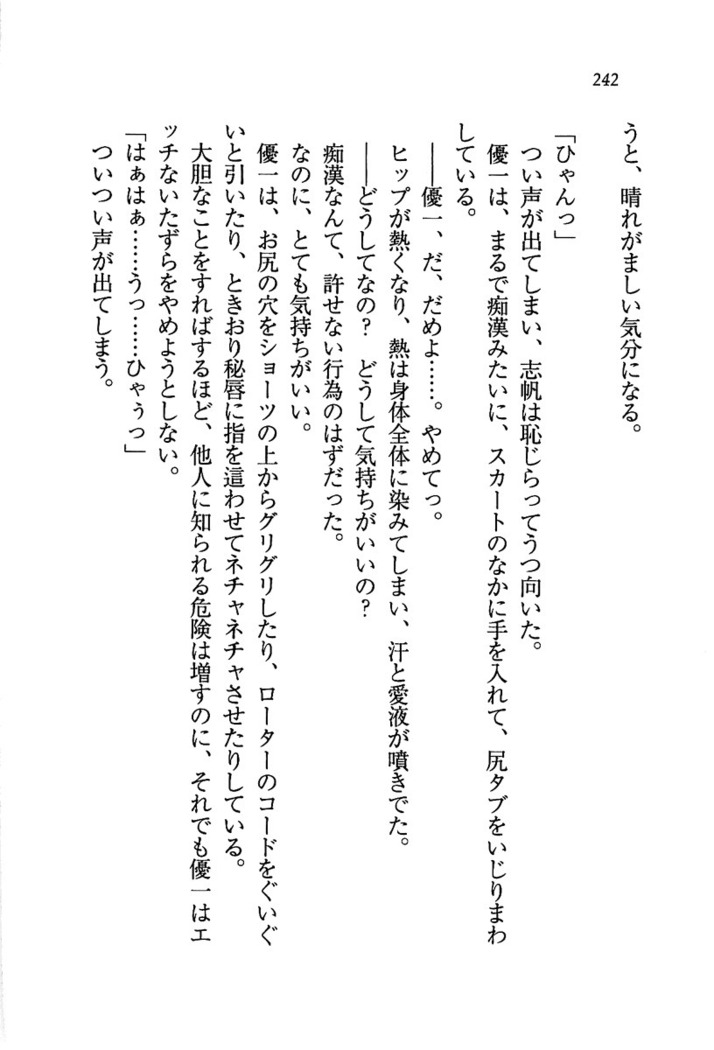 242
うと、晴れがましい気分になる。
「ひゃんっ」
つい声が出てしまい、志帆は恥じらってうつ向いた。
優一は、まるで痴漢みたいに、スカートのなかに手を入れて、尻タブをいじりまわ
している。
――優一、だ、だめよ……。やめてっ。
ヒップが熱くなり、熱は身体全体に染みてしまい、汗と愛液が噴きでた。
――どうしてなの？　どうして気持ちがいいの？
痴漢なんて、許せない行為のはずだった。
なのに、とても気持ちがいい。
優一は、お尻の穴をショーツの上からグリグリしたり、ローターのコードをぐいぐ
いと引いたり、ときおり秘唇に指を這わせてネチャネチャさせたりしている。
大胆なことをすればするほど、他人に知られる危険は増すのに、それでも優一はエ
ッチないたずらをやめようとしない。
「はぁはぁ……うっ……ひゃぅっ」
ついつい声が出てしまう。